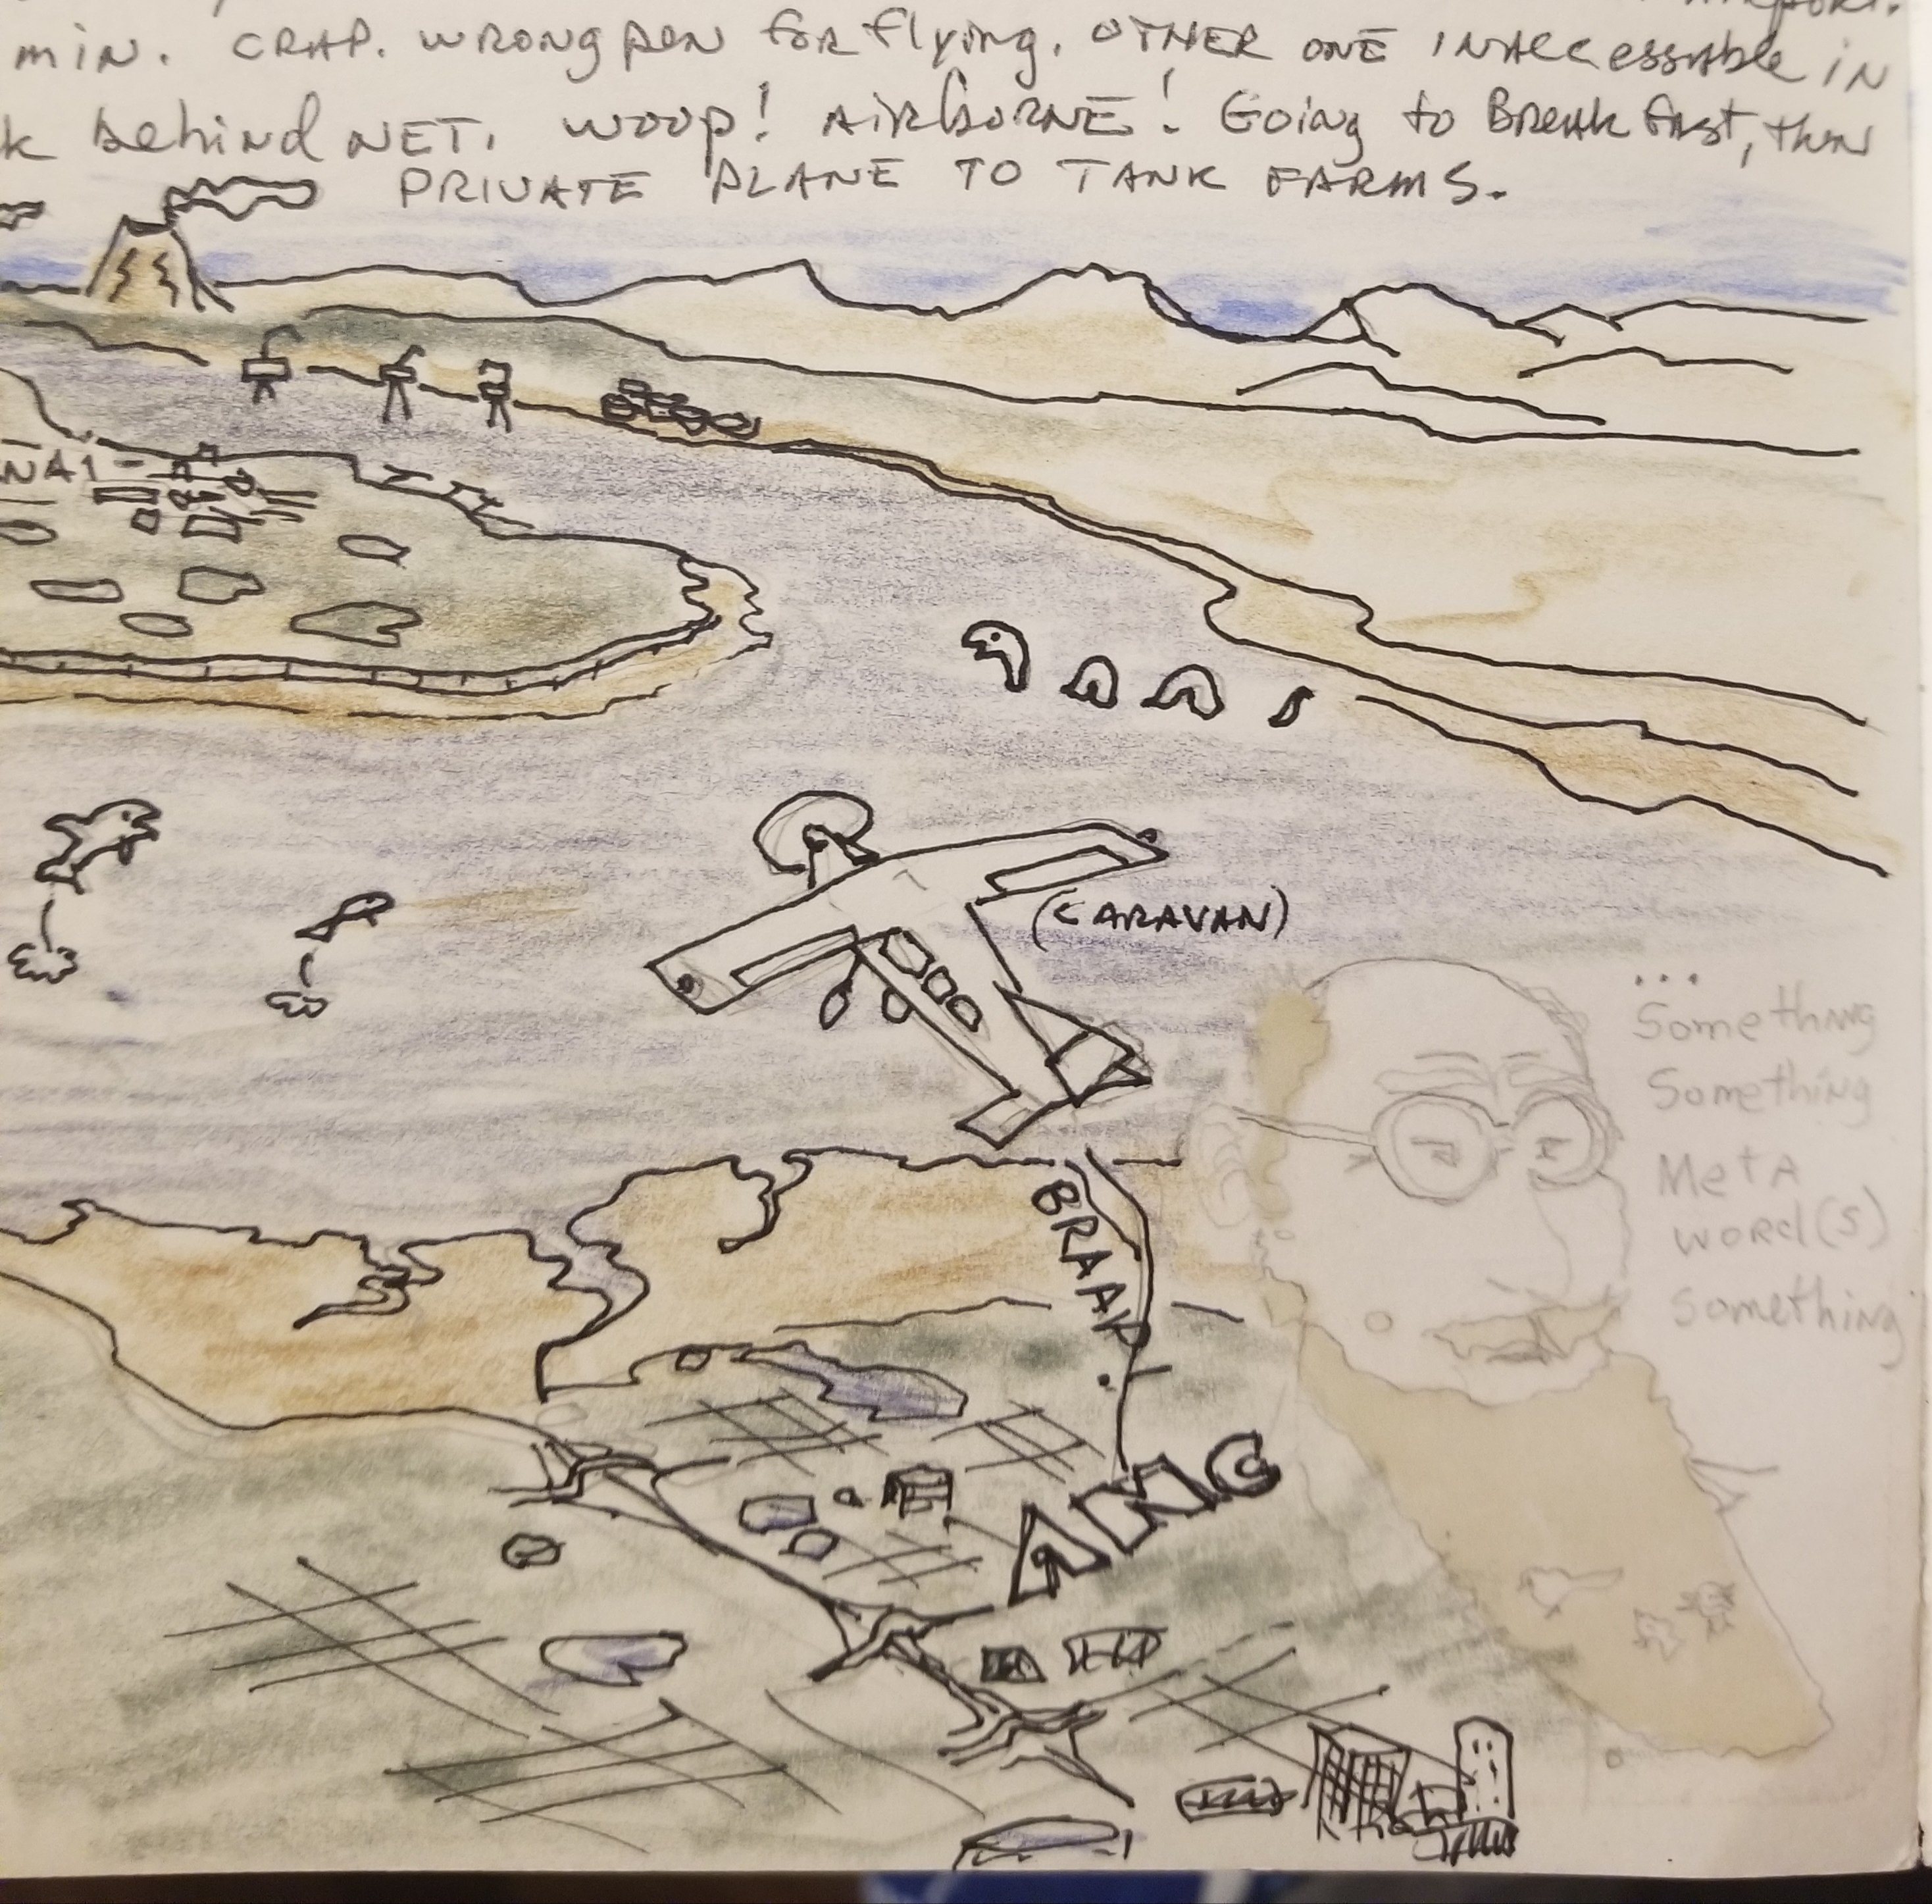 min. CRAP. WRONG PEN for flying. OTHER ONE INACCESSABLE IN
k behind NET. WOOP! AIRBORNE! Going to BREAKFAST, then
PRIVATE PLANE TO TANK FARMS.
NAI-
(CARAVAN)
...
Something
Something
MetA
word(s)
something
BRAAP
AMC